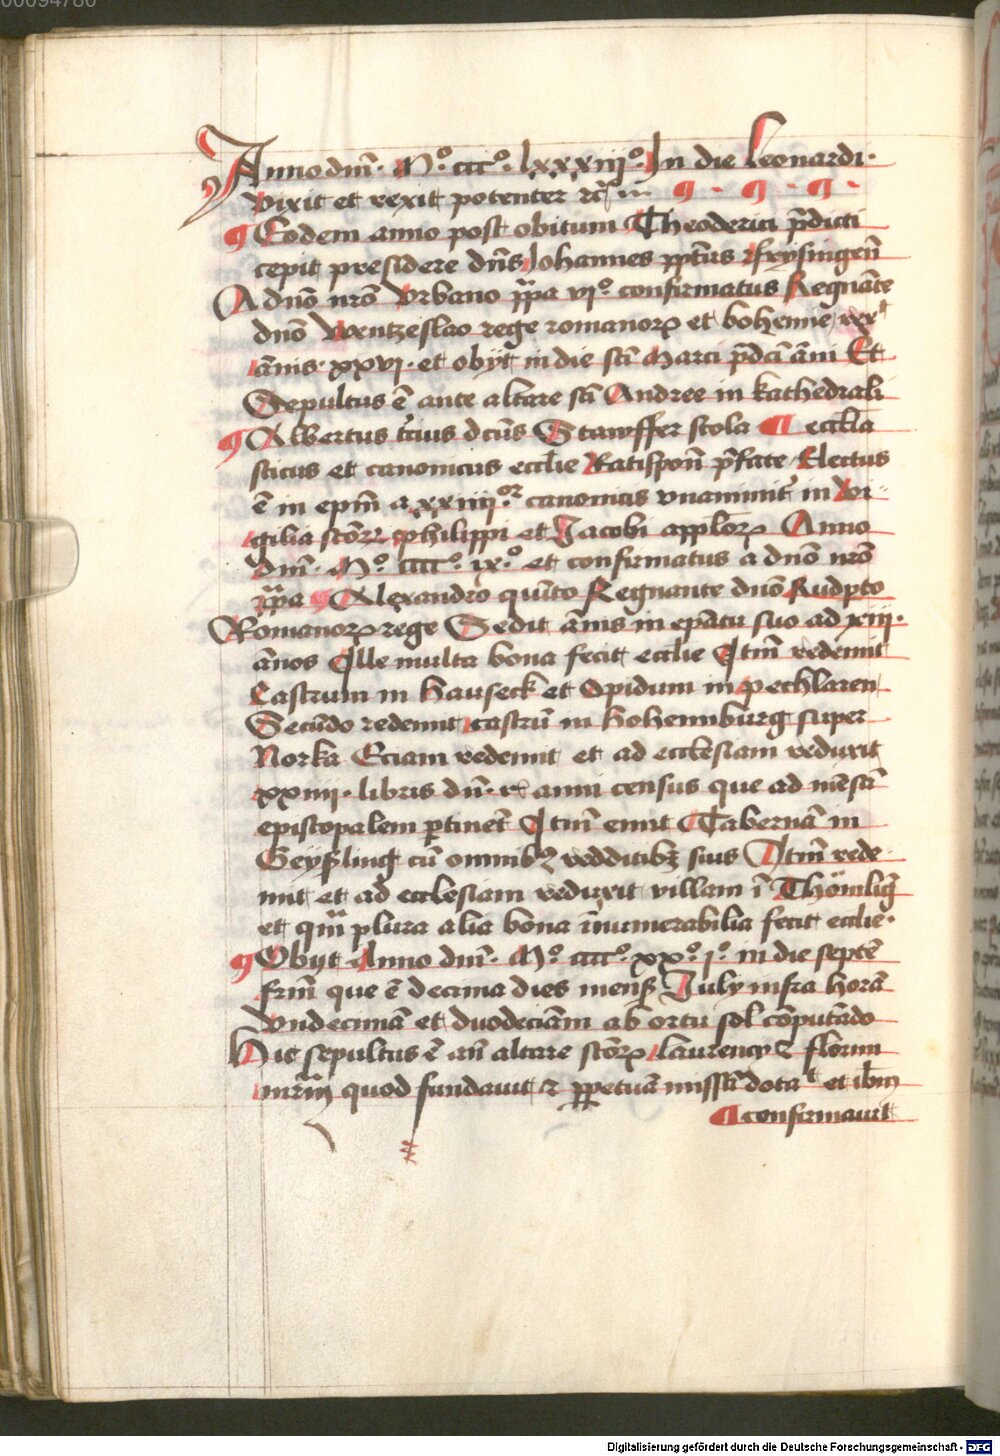 00094780
Anno dm̄· M°· ccc°· lxxxiij°· In die Leonardi·
vixit et rexit potenter rc̄
Eodem anno post obitum Theoderici p̄dicti
cepit presidere dn̄s Johannes pptūs frysingen̄
A dn̄o nr̄o Vrbano p̄pa vj° confirmatus Regnāte
dn̄o Wentzeslao rege romanorꝝ et bohemie rex
ānis· xxvj· et obijt in die sc̄i Marci p̄dc̄i āni Et
Sepultus ē ante altare sc̄i Andree in kathedrali
Albertus t̄cius dc̄us Stawffer scola eccl̄a
sticus et canonicus eccl̄ie Ratispon̄ p̄fate Electus
ē in ep̄m a xxiiij°ʳ canonicis vnanimit̓ in vi
gilia sc̄orꝝ philippi et Jacobi appl̄orꝝ Anno
dm̄· M°· cccc°· ix°· et confirmatus a dn̄o nr̄o
p̄pa Alexandro quīto Regnante dn̄o Rudp̱to
Romanorꝝ rege Sedit ānis in ep̄atu suo ad xiij·
ānos Ille multa bona fecit eccl̄ie Itm̄ redemit
Castrum in Hauseck et Opidum in pechlaren
Secūdo redemit castrū in hohennburg super
Norka Eciam redemit et ad ecclesiam reduxit
xxiiij· libris dn̄· rͤ anni census que ad mēsā
episcopalem ꝑtinet̄ Itm̄ emit Tabernā in
Geyſling̓ cū omnibꝫ redditibꝫ suis Itm̄ rede
mit et ad ecclesiam reduxit villam ī Thömlig̓
et qm̄ plura alia bona īnumerabilia fecit eccl̄ie·
Obijt Anno dm̄· M°· cccc°· xx°· j°· in die septē
frm̄ que ē decima dies mens̓ July infra horā
vndecimā et duodeciām ab ortu sol̓ cōputādo
Hic sepultus ē an̄ altare sc̄orꝝ laurency & florini
mr̄m̄ quod fundauit & ꝑpetuā missā dotaᵗ et ibm̄
confirmauit
Digitalisierung gefördert durch die Deutsche Forschungsgemeinschaft - DFG